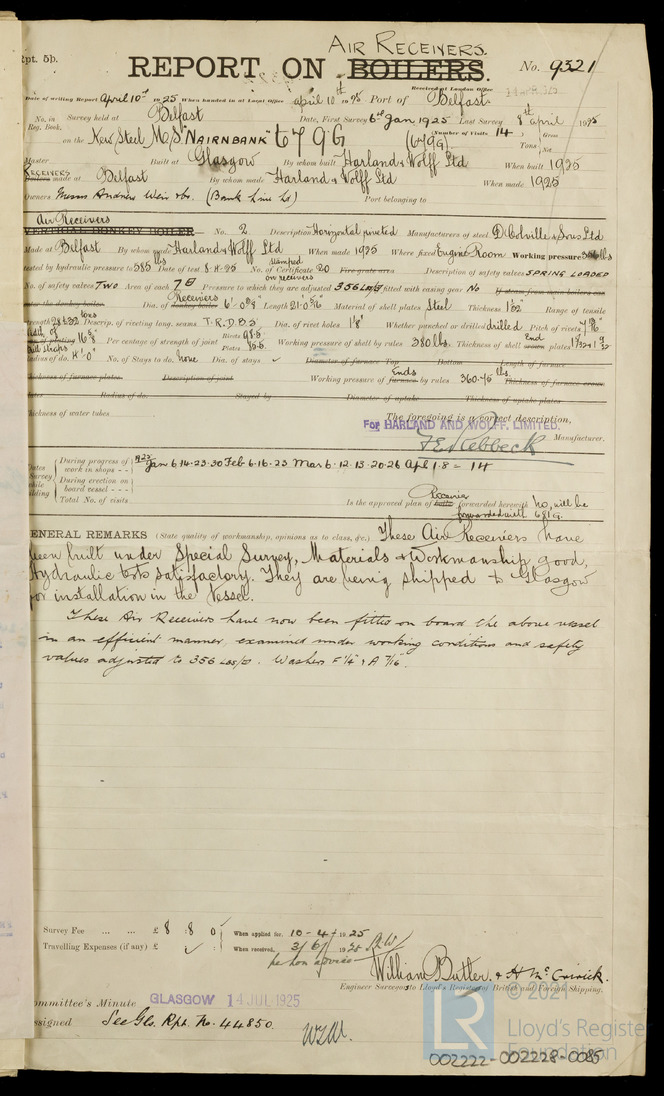 AIR RECEIVERS.
Rpt. 5b.
REPORT ON BOILERS. No. 9321
Received at London Office
Date of writing Report April 10th 1925 When handed in at Local Office april 10th 1925 Port of Belfast
No. in Survey held at Belfast Date, First Survey 6th Jan 1925 Last Survey 8th april 1925
Reg. Book. Number of Visits 14
on the New Steel M.S. "NAIRNBANK" 6796 (6799) Gross Tons Net
Master Built at Glasgow By whom built Harland & Wolff Ltd When built 1925
RECEIVERS
Boilers made at Belfast By whom made Harland & Wolff Ltd When made 1925
Owners Messrs Andrew Weir & Co. (Bank Line Ld) Port belonging to
Air Receivers
VERTICAL DONKEY BOILER No. 2 Description Horizontal riveted Manufacturers of steel D. Colville & Sons Ltd
Made at Belfast By whom made Harland & Wolff Ltd When made 1925 Where fixed Engine Room Working pressure 356 lbs
tested by hydraulic pressure to 585 lbs Date of test 8.4.25 No. of Certificate 20 Fire grate area Description of safety valves SPRING LOADED
stamped on receivers
No. of safety valves TWO Area of each Pressure to which they are adjusted 356 fitted with easing gear NO If steam from main boilers can
enter the donkey boiler Dia. of Receivers donkey boiler 6'-0 Length 21'-0 Material of shell plates Steel Thickness 1 Range of tensile
strength 28 & 32 tons Descrip. of riveting long. seams T.R.D.B.S Dia. of rivet holes Whether punched or drilled drilled Pitch of rivets
Per centage of strength of joint Rivets Plates Working pressure of shell by rules 380 lbs. Thickness of shell crown plates
End
Radius of do. No. of Stays to do. none Dia. of stays Diameter of furnace Top Bottom Length of furnace
Thickness of furnace plates Description of joint Working pressure of furnace by rules 360.75 lbs. Thickness of furnace crown
Ends
plates Radius of do. Stayed by Diameter of uptake Thickness of uptake plates
Thickness of water tubes The foregoing is a correct description,
FOR HARLAND AND WOLFF, LIMITED.
F.E. Rebbeck Manufacturer.
Dates of Survey while building During progress of work in shops - - 1925 Jan 6.14.23.30 Feb 6.16.23 Mar 6.12.13.20.26 Apl 1.8 = 14
During erection on board vessel - - -
Total No. of visits
Is the approved plan of boiler forwarded herewith No, will be
Receiver
forwarded with
GENERAL REMARKS (State quality of workmanship, opinions as to class, &c.) These Air Receivers have
been built under Special Survey, Materials & Workmanship good,
Hydraulic tests satisfactory. They are being shipped to Glasgow
for installation in the Vessel.
These Air Receivers have now been fitted on board the above vessel
in an efficient manner, examined under working conditions and safety
valves adjusted to 356 lbs/□". Washers F 1/4", A 7/16".
Survey Fee ... ... £ 8 : 8 : 0 When applied for, 10-4-1925
Travelling Expenses (if any) £ : : When received, 3/6/1925
William Butler & H. McCririck.
Engineer Surveyors to Lloyd's Register of British and Foreign Shipping.
© 2021
Committee's Minute GLASGOW 14 JUL 1925
LR
Lloyd's Register
Foundation
Assigned See Gls. Rpt. No. 44850.
002222-002228-0085